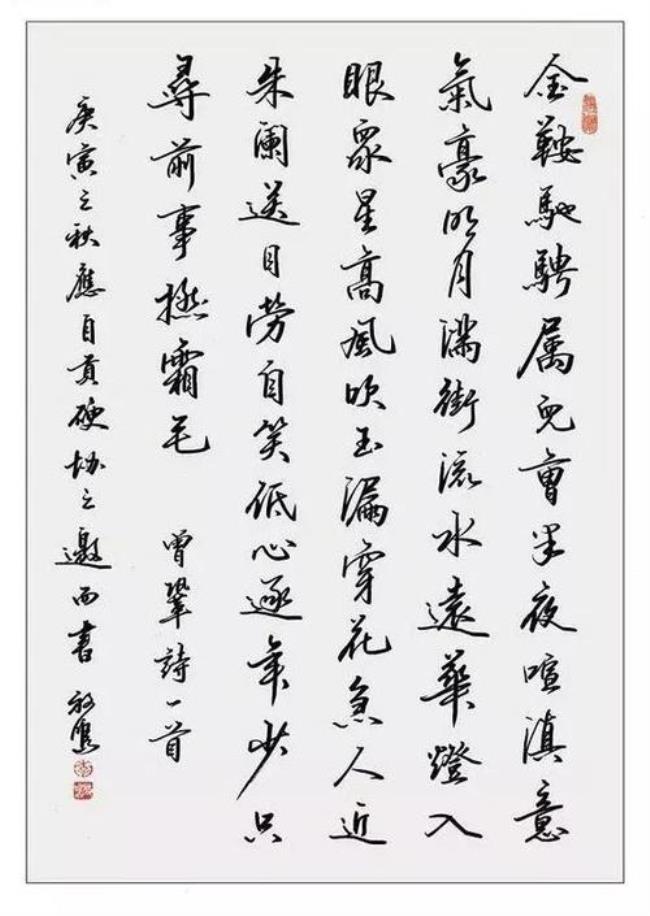 金鞍馳騁属兒曹半夜喧滇意
氣豪明月滿街流水遠華燈入
眼眾星高風吹玉漏穿花急人近
朱闌送目劳自笑低心逐年少只
尋前事撚霜毛 曾鞏詩一首
庚寅之秋應自貢硬協之邀而書